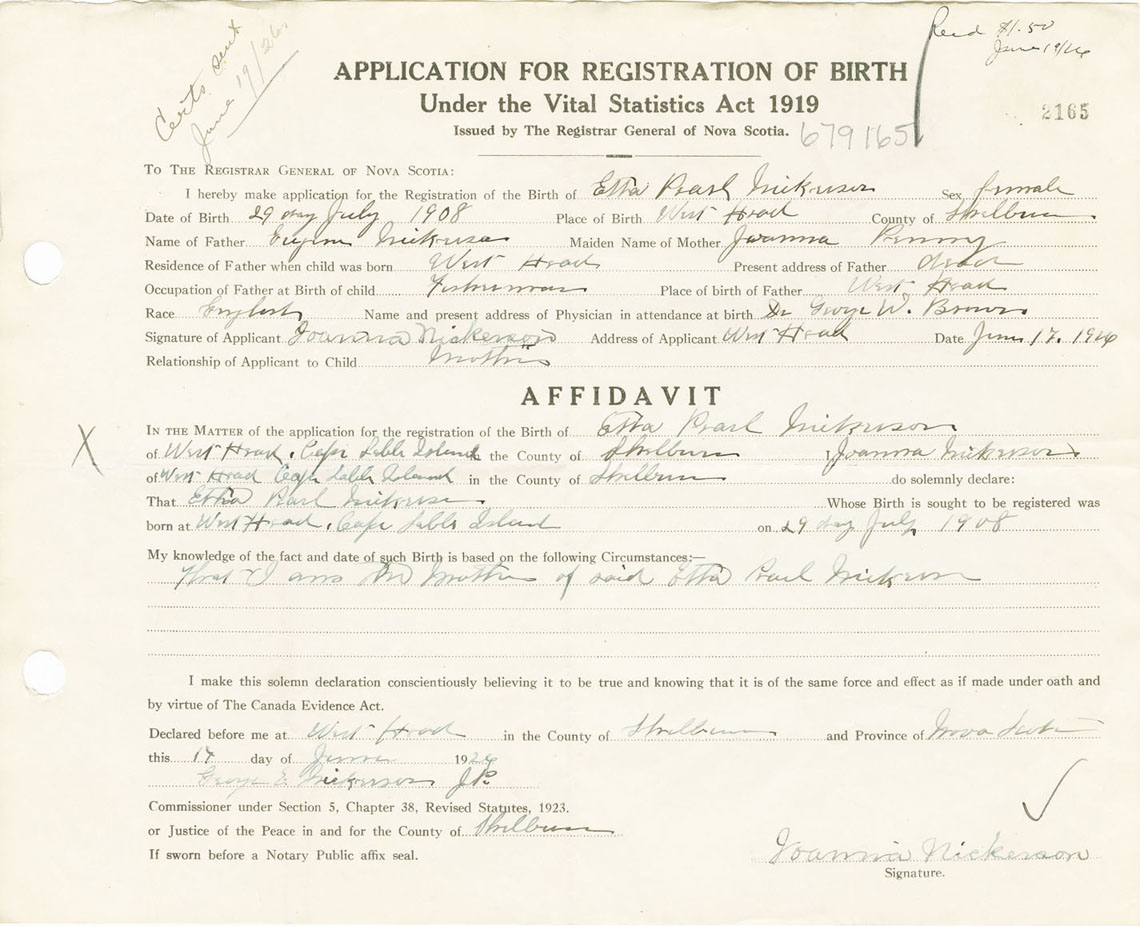 Certs. sent
June 19/26
Recd $1.50
June 19/26
APPLICATION FOR REGISTRATION OF BIRTH
Under the Vital Statistics Act 1919
2165
Issued by The Registrar General of Nova Scotia. 679165
TO THE REGISTRAR GENERAL OF NOVA SCOTIA:
I hereby make application for the Registration of the Birth of Etta Pearl Nickerson Sex female
Date of Birth 29 day July 1908 Place of Birth West Head County of Shelburne
Name of Father Eugene Nickerson Maiden Name of Mother Joanna Penny
Residence of Father when child was born West Head Present address of Father dead
Occupation of Father at Birth of child Fisherman Place of birth of Father West Head
Race English Name and present address of Physician in attendance at birth Dr George W. Brown
Signature of Applicant Joanna Nickerson Address of Applicant West Head Date June 17, 1926
Relationship of Applicant to Child Mother
AFFIDAVIT
IN THE MATTER of the application for the registration of the Birth of Etta Pearl Nickerson
X of West Head, Cape Sable Island the County of Shelburne I Joanna Nickerson
of West Head Cape Sable Island in the County of Shelburne do solemnly declare:
That Etta Pearl Nickerson Whose Birth is sought to be registered was
born at West Head, Cape Sable Island on 29 day July 1908
My knowledge of the fact and date of such Birth is based on the following Circumstances:—
That I am the Mother of said Etta Pearl Nickerson
I make this solemn declaration conscientiously believing it to be true and knowing that it is of the same force and effect as if made under oath and
by virtue of The Canada Evidence Act.
Declared before me at West Head in the County of Shelburne and Province of Nova Scotia
this 17 day of June 1926
George E. Nickerson J.P.
Commissioner under Section 5, Chapter 38, Revised Statutes, 1923.
or Justice of the Peace in and for the County of Shelburne
If sworn before a Notary Public affix seal.
Joanna Nickerson
Signature.